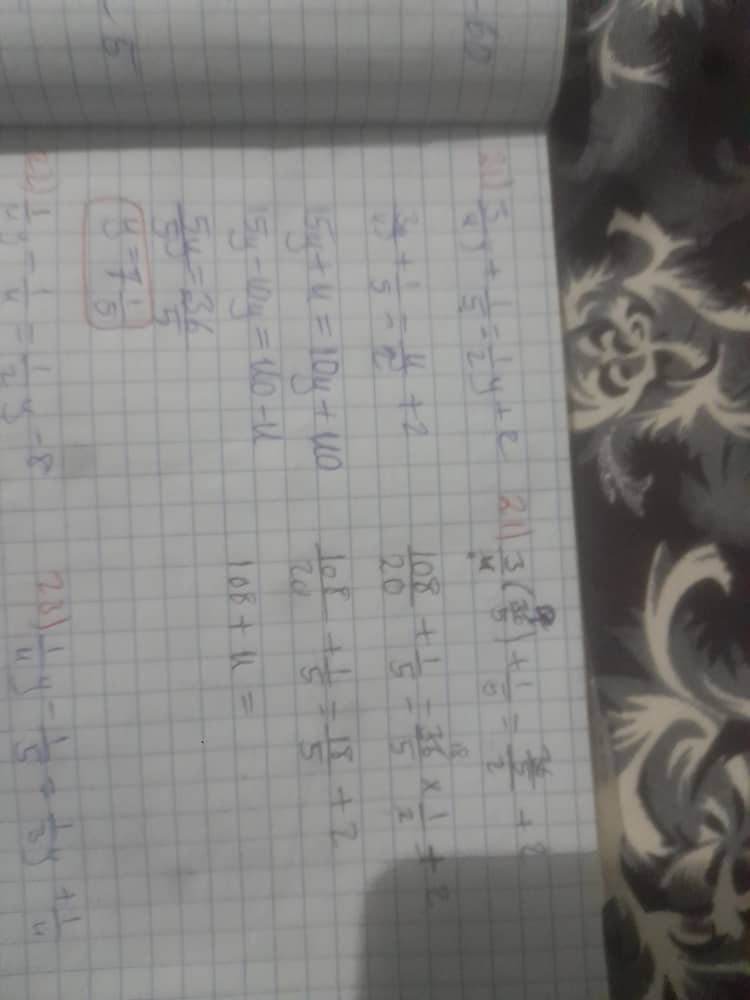 -60
5
21) 3/4 y + 1/5 = 1/2 y + 2
3y/4 + 1/5 = y/2 + 2
15y + 4 = 10y + 40
15y - 10y = 40 - 4
5y/5 = 36/5
y = 7 1/5
21) 3/4 (36/5) + 1/5 = 36/5/2 + 2
108/20 + 1/5 = 36/5 x 1/2 + 2
18
108/20 + 1/5 = 18/5 + 2
108 + 4 =
22) 1/4 y - 1/4 = 1/2 y - 8
23) 1/4 y - 1/5 = 1/3 y + 1/4